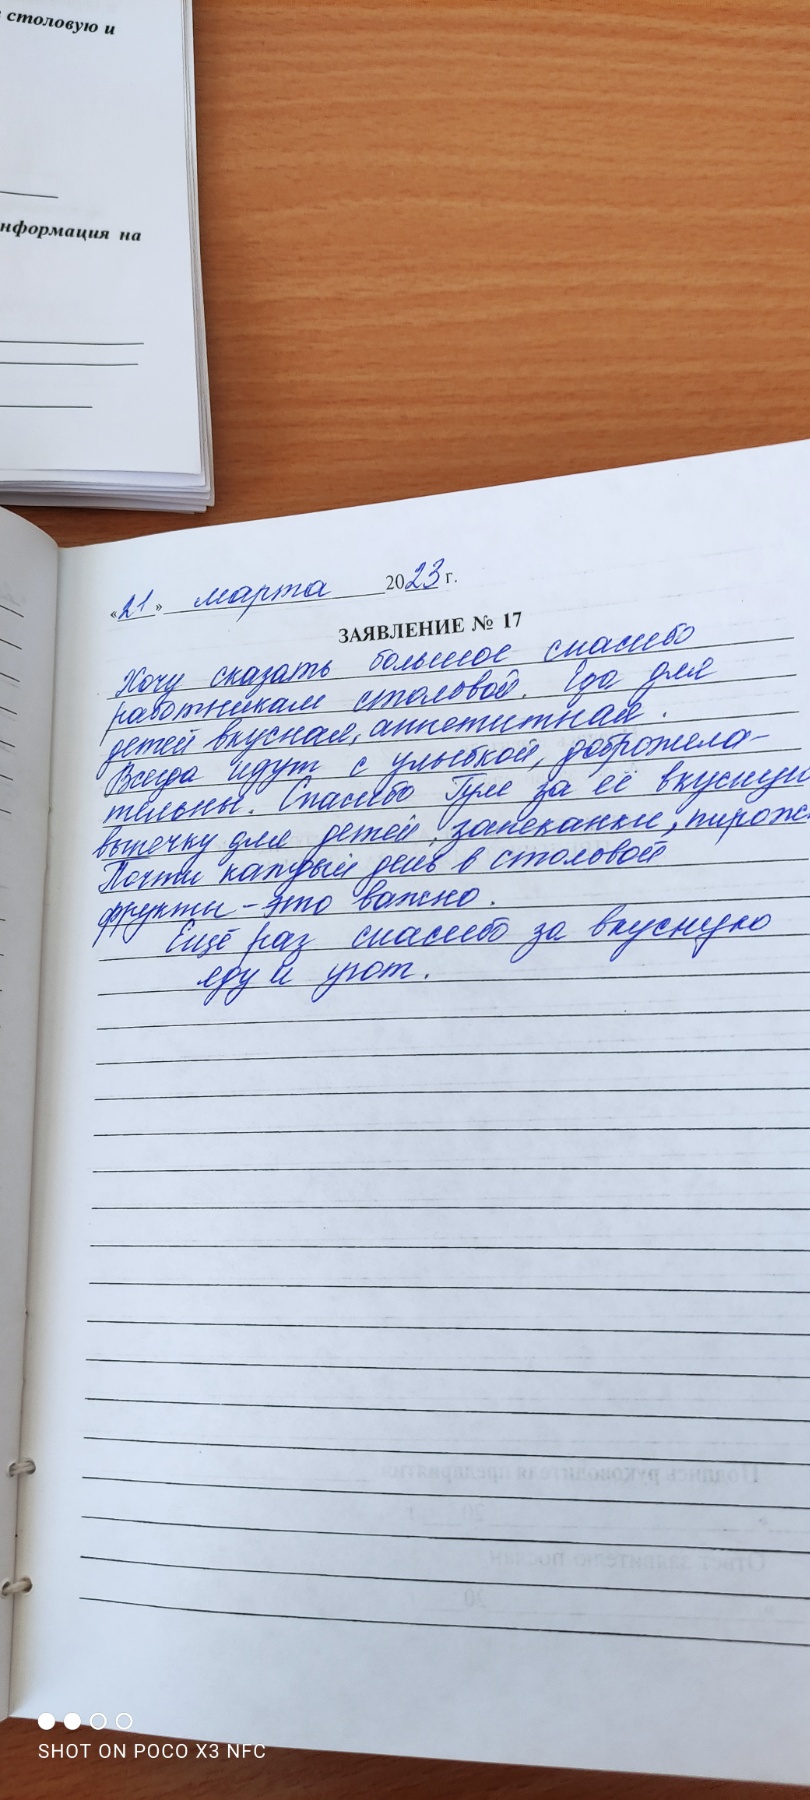 столовую и
нформация на
«21» марта 2023 г.
ЗАЯВЛЕНИЕ № 17
Хочу сказать большое спасибо
работникам столовой. Еда для
детей вкусная, аппетитная.
Всегда идут с улыбкой, доброжела-
тельны. Спасибо Гуле за её вкусную
выпечку для детей, запеканки, пирож
Почти каждый день в столовой
фрукты - это важно.
Ещё раз спасибо за вкусную
еду и уют.
Подпись руководителя предприятия
20 г
Ответ заявителю послан
20
SHOT ON POCO X3 NFC